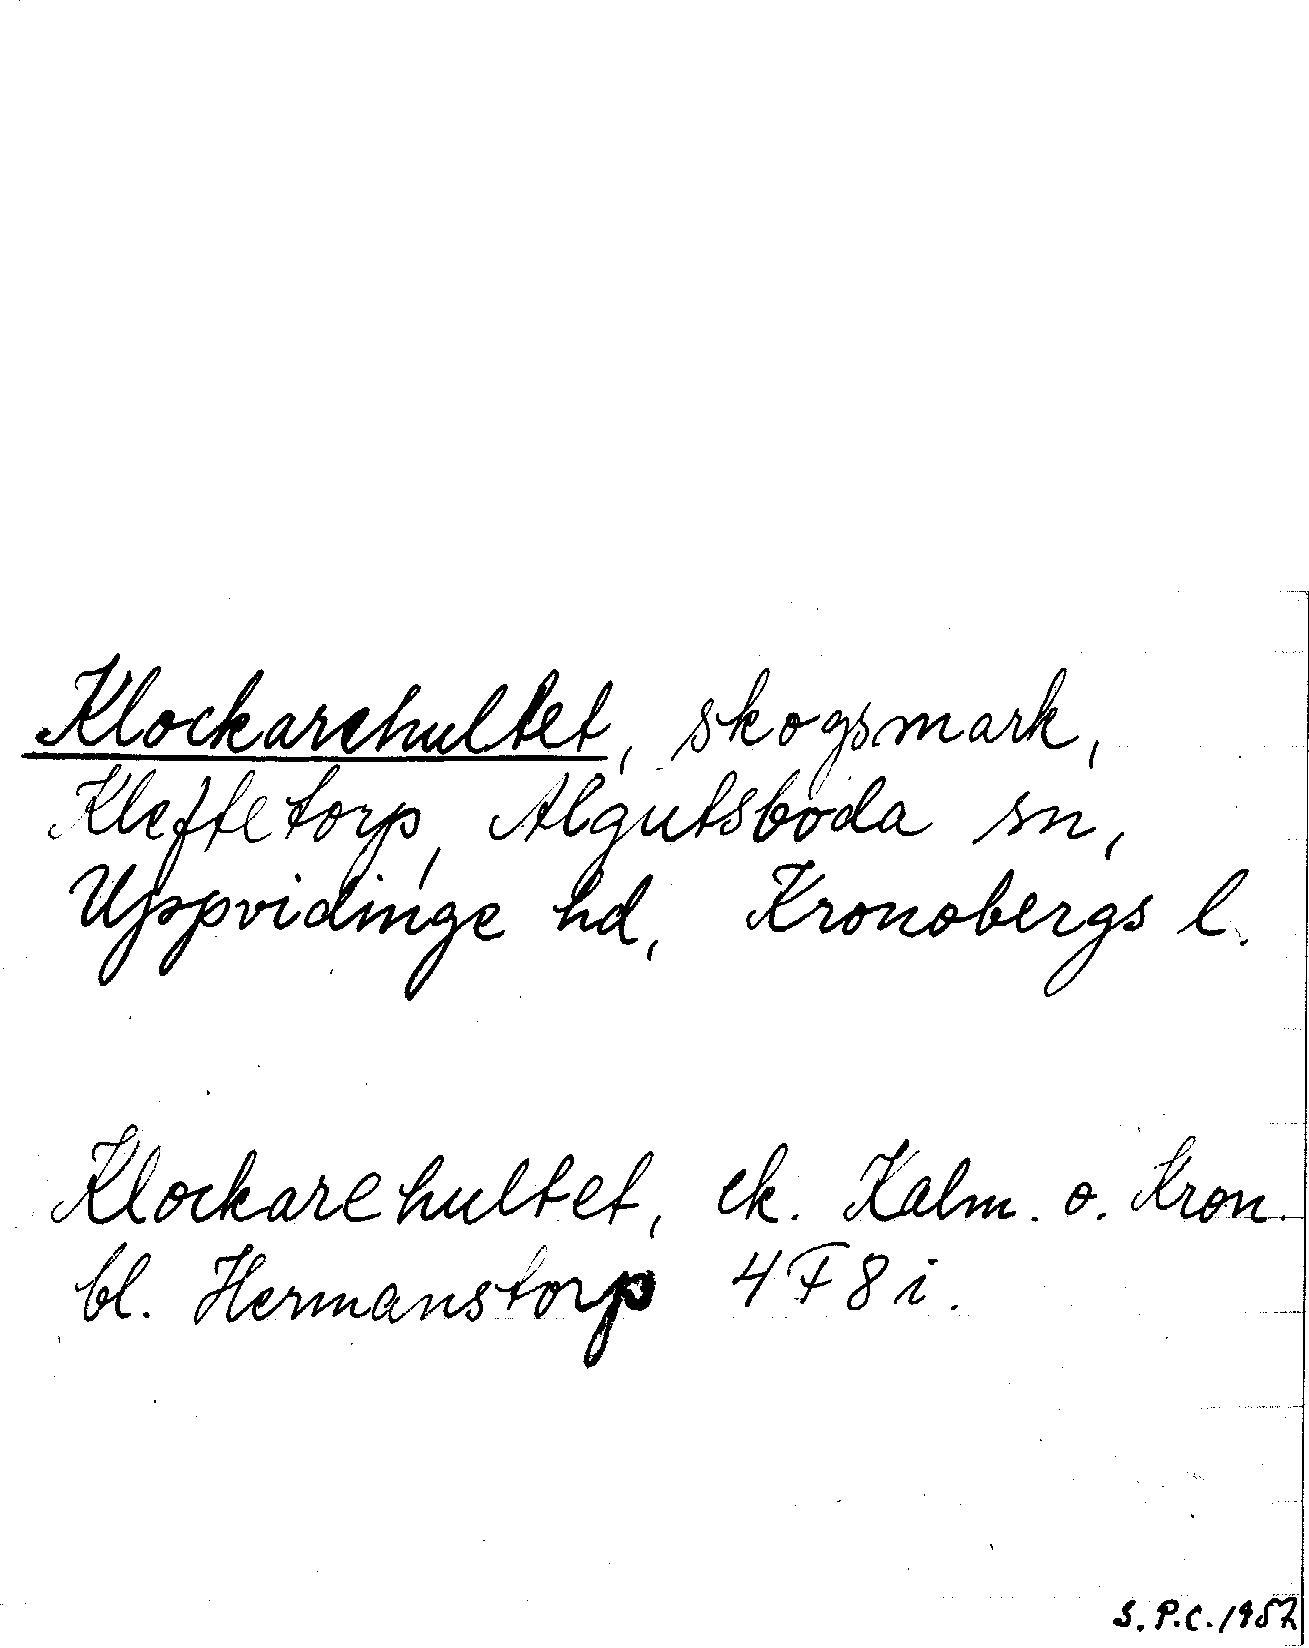 Klockarehultet, skogsmark,
Kleftetorp, Algutsboda sn,
Uppvidinge hd, Kronobergs l.
Klockarehultet, ek. Kalm. o. Kron.
bl. Hermanstorp 4F8i.
S.P.C. 1952